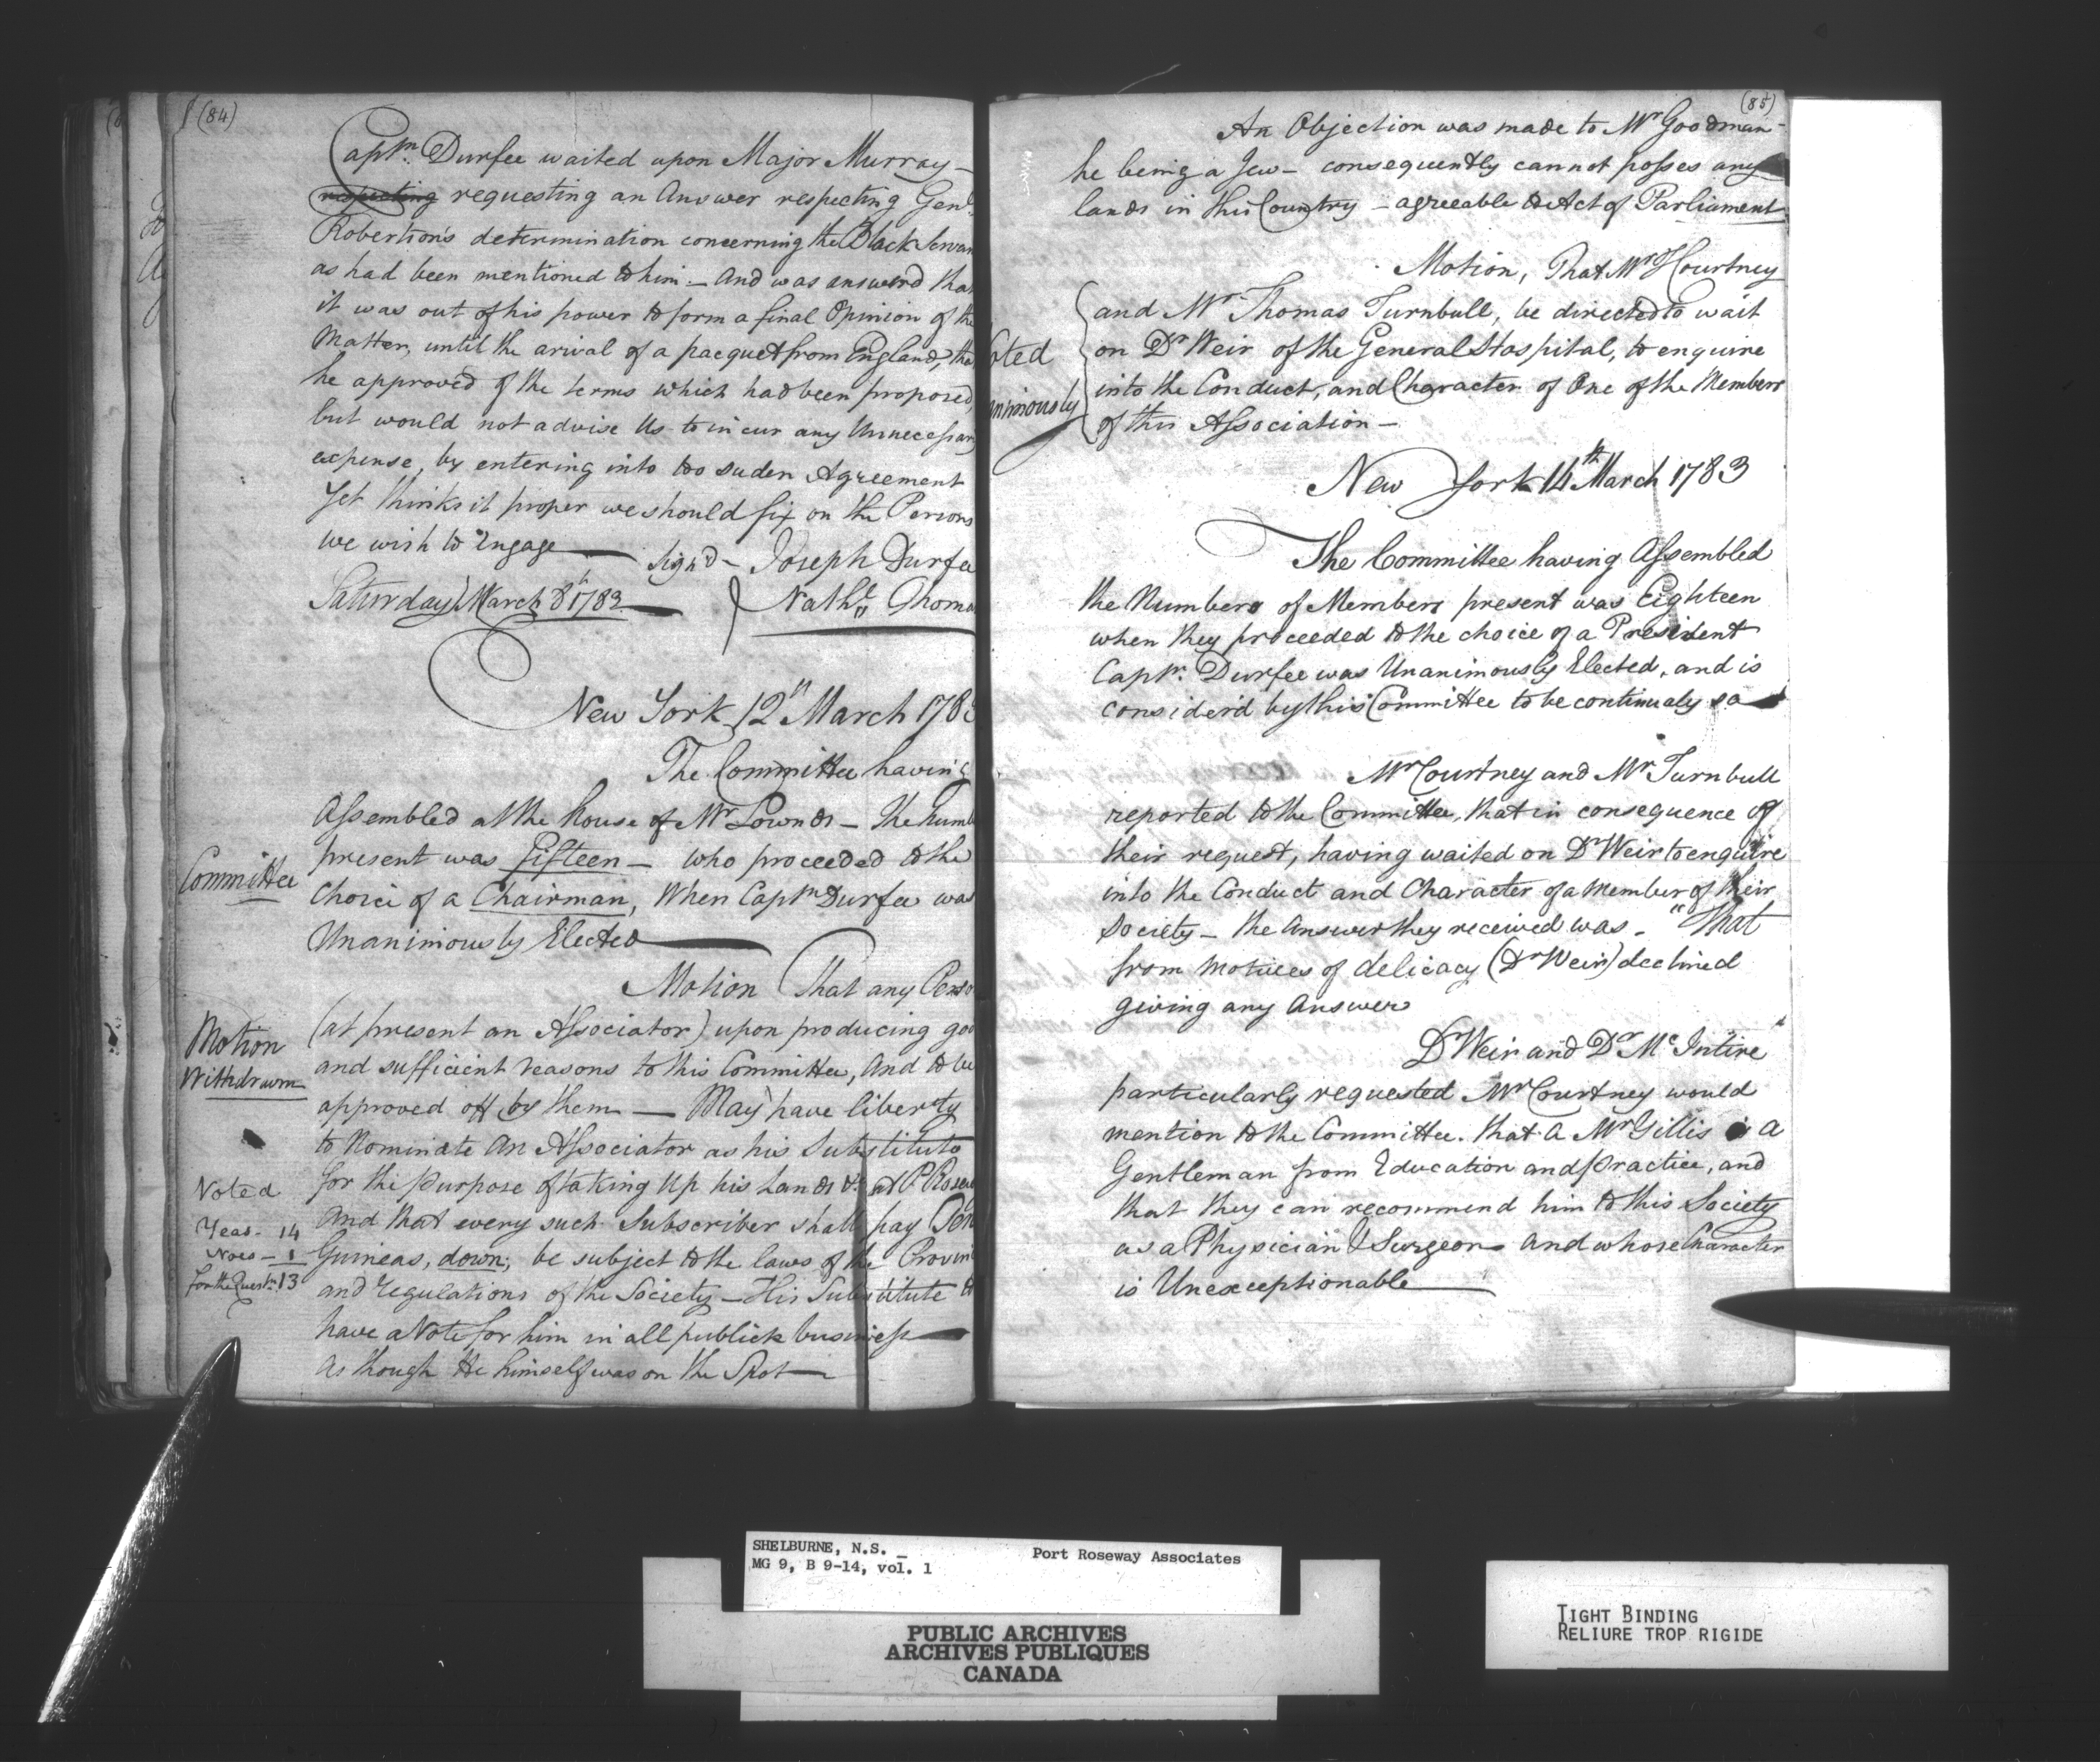 (84)
Captn. Durfee waited upon Major Murray –
respecting requesting an Answer respecting Genl
Robertson's determination concerning the Black Servan
as had been mentioned to him – And was answerd tha
it was out of his power to form a final Opinion of the
Matter, until the arival of a pacquet from England, tha
he approved of the terms which had been proposed,
but would not advise Us to incur any Unnecessary
expense, by entering into too suden Agreement
Yet thinks it proper we should fix on the Persons
we wish to Engage — Sign'd – Joseph Durfee
Saturday March 8th 1783 — Nathl. Thoma
New York 12th March 178
The Committee having
Assembled at the house of Mr Lownds – The Numb
Committee
present was Fifteen – who proceeded to the
Choice of a Chairman, When Captn Durfee was
Unanimously Elected —
Motion That any Perso
Motion
Withdrawn
(at present an Associator) upon producing goo
and sufficient reasons to this Committee, And to be
approved off by them — May have liberty
to Nominate An Associator as his Substitute
for the Purpose of taking Up his Lands &c at P. Rosew
And that every such Subscriber shall pay Ten
Guineas, down; be subject to the laws of the Provin
and regulations of the Society – His Substitute to
have a Vote for him in all publick business —
as though He himself was on the Spot —
Voted
Yeas – 14
Noes – 1
for the Questn. 13
(85)
An Objection was made to Mr Goodman –
he being a Jew – consequently cannot posses any
lands in this Country – agreeable to Act of Parliament
Motion, That Mr Courtney
and Mr Thomas Turnbull, be directed to wait
oted
nimously
on Dr Weir of the General Hospital, to enquire
into the Conduct, and Character of One of the Members
of this Association –
New York 14th March 1783
The Committee having Assembled
the Numbers of Members present was Eighteen
when they proceeded to the choice of a President
Captn. Durfee was Unanimously Elected, and is
consider'd by this Committee to be continualy so
Mr Courtney and Mr Turnbull
reported to the Committee, that in consequence of
their request, having waited on Dr Weir to enquire
into the Conduct and Character of a Member of their
Society – the Answer they received was – "That
from Motives of delicacy (Dr Weir) declined
giving any Answer"
Dr Weir and Dr McIntire
particularly requested Mr Courtney would
mention to the Committee. that a Mr Gillis is a
Gentleman from Education and Practice, and
that they can recommend him to this Society
as a Physician & Surgeon and whose Character
is Unexceptionable —
SHELBURNE, N.S. _
MG 9, B 9-14, vol. 1
Port Roseway Associates
PUBLIC ARCHIVES
ARCHIVES PUBLIQUES
CANADA
TIGHT BINDING
RELIURE TROP RIGIDE